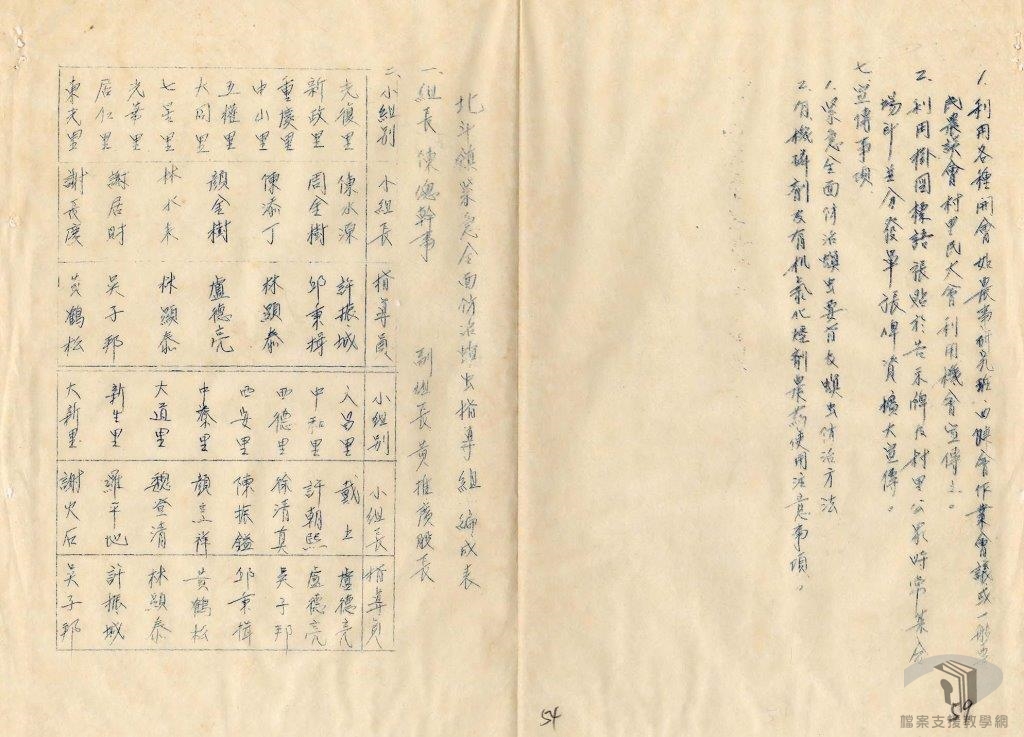 1. 利用各種開會如農事研究班、四健會作業會議或一般農
民農訓會村里民大會利用機會宣傳之。
2. 利用掛圖標語張貼於告示牌及村里公民時常集合
場所並分發單張牌資擴大宣傳。
七、宣傳事項
1. 緊急全面防治螟虫要旨及螟虫防治方法
2. 有機磷劑及有机氯化烴劑農葯使用注意事項。
北斗鎮緊急全面防治螟虫指導組編成表
一、組長 陳總幹事 副組長 黄推廣股長
二、
小組別 小組長 指導員 小組別 小組長 指導員
光復里 陳水源 許振城 入呂里 戴土 盧德亮
新政里 周金樹 邱秉楫 中和里 許朝熙 盧德亮
重慶里 西德里 徐清真 吴子邦
中山里 陳添丁 林顕泰 西安里 陳振鎰 邱秉楫
五權里
大同里 顏金樹 盧德亮 中秦里 顏 祥 黄鶴松
七星里 林水来 林顕泰 大道里 魏登清 林顕泰
光華里
居仁里 謝居財 吴子邦 新生里 羅平地 許振城
東光里 謝長慶 黄鶴松 大新里 謝火石 吴子邦
54
59
檔案支援教學網